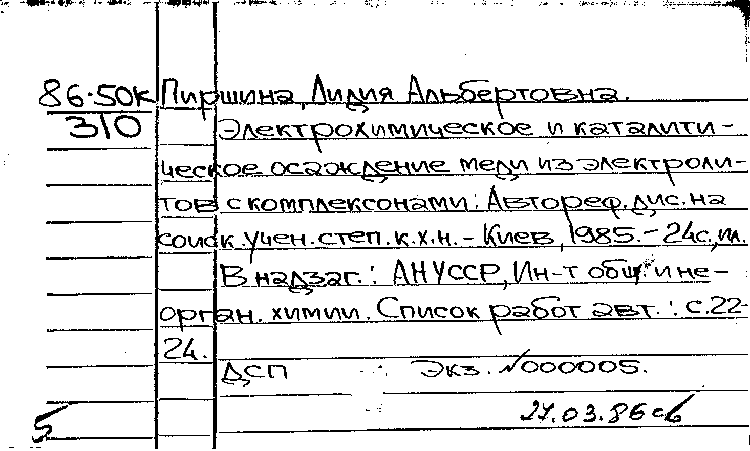 86-50к Пиршина, Лидия Альбертовна.
310 Электрохимическое и каталити-
ческое осаждение меди из электроли-
тов с комплексонами: Автореф. дис. на
соиск. учен. степ. к.х.н. - Киев, 1985. - 24с., ил.
В надзаг.: АН УССР, Ин-т общ. и не-
орган. химии. Список работ авт.: с.22-
24.
ДСП Экз. №000005.
27.03.86
5